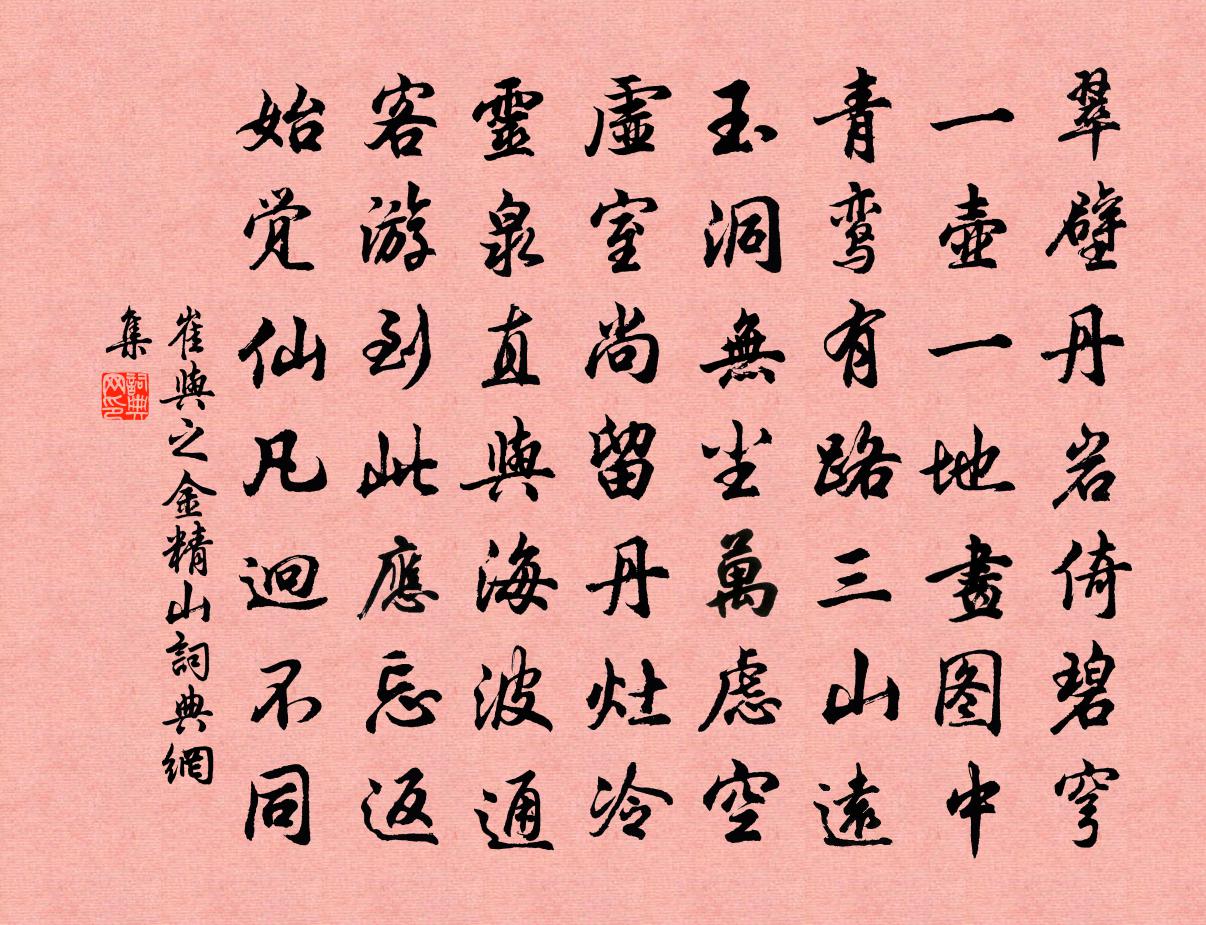 翠壁丹岩倚碧穹
一壺一地畫图中
青鸾有路三山遠
玉洞無尘萬慮空
虛室尚留丹灶冷
靈泉直與海波通
客游到此應忘返
始觉仙凡迥不同
崔與之金精山詞典網
集
詞典
网印